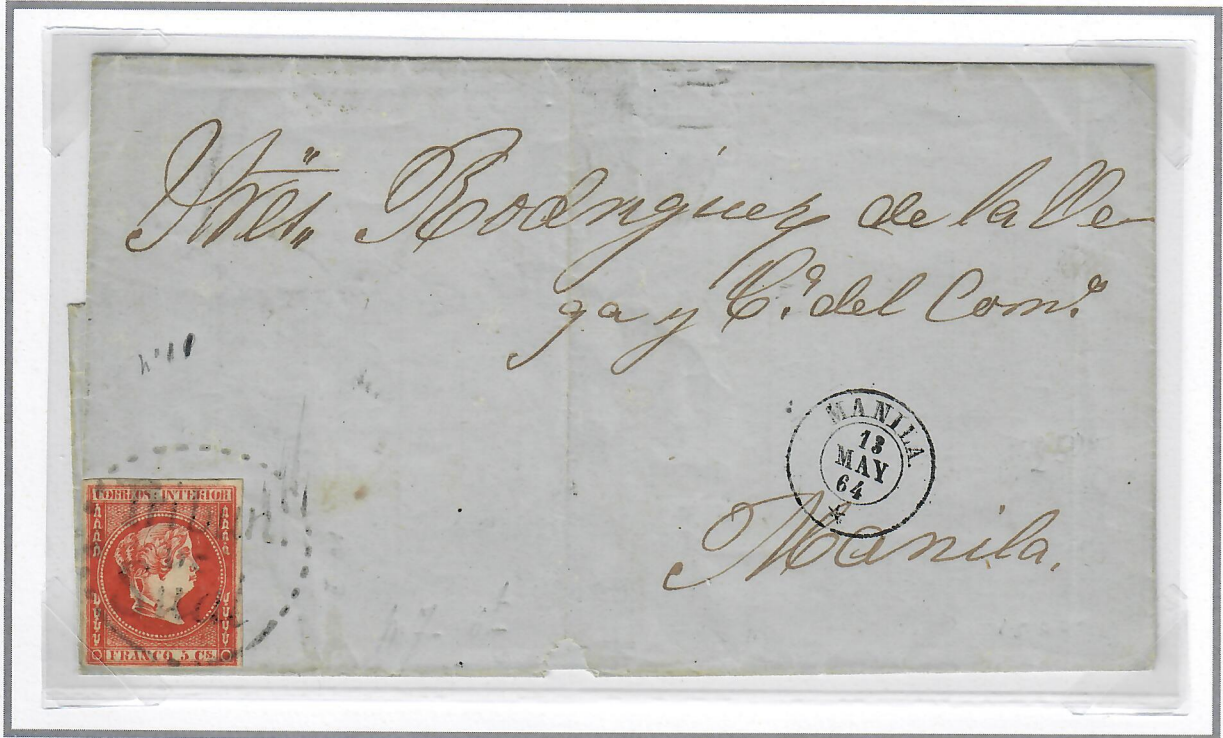 Sres. Rodriguez de la Ve-
ga y Cª. del Comº.
MANILA
13
MAY
64
Manila.
CORREOS INTERIOR
FRANCO. 5 Cs.